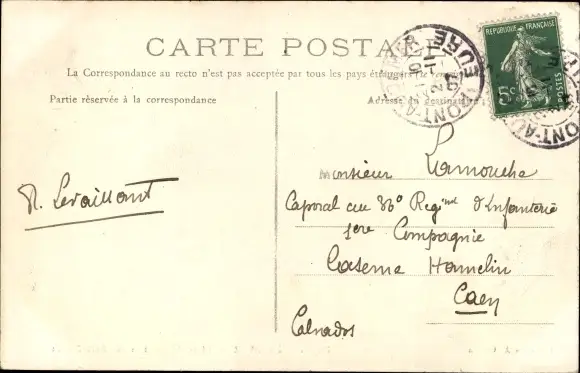 CARTE POSTALE
La Correspondance au recto n'est pas acceptée par tous les pays étrangers
Partie réservée à la correspondance
Adresse du destinataire
RÉPUBLIQUE FRANÇAISE
5c
POSTES
PONT-AU
EURE
R. Levaillant
Monsieur Lamouche
Caporal au 36e Regimt d'Infanterie
1ere Compagnie
Caserne Hamelin
Caen
Calvados